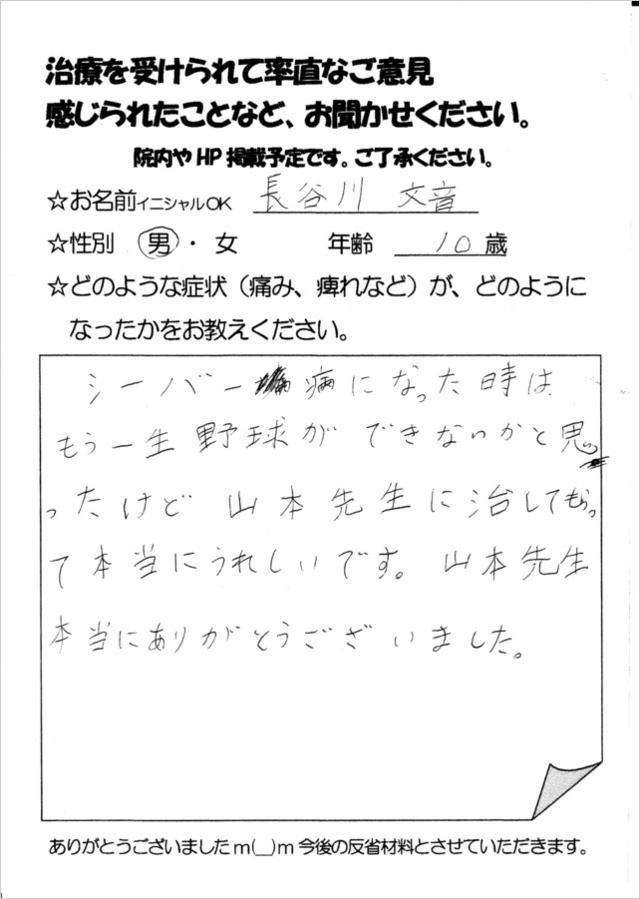 治療を受けられて率直なご意見
感じられたことなど、お聞かせください。
院内やHP掲載予定です。ご了承ください。
☆お名前イニシャルOK 長谷川 文音
☆性別 男・女 年齢 10歳
☆どのような症状（痛み、痺れなど）が、どのように
なったかをお教えください。
シーバー病になった時は
もう一生野球ができないかと思
ったけど山本先生に治してもらっ
て本当にうれしいです。山本先生
本当にありがとうございました。
ありがとうございましたm(__)m今後の反省材料とさせていただきます。